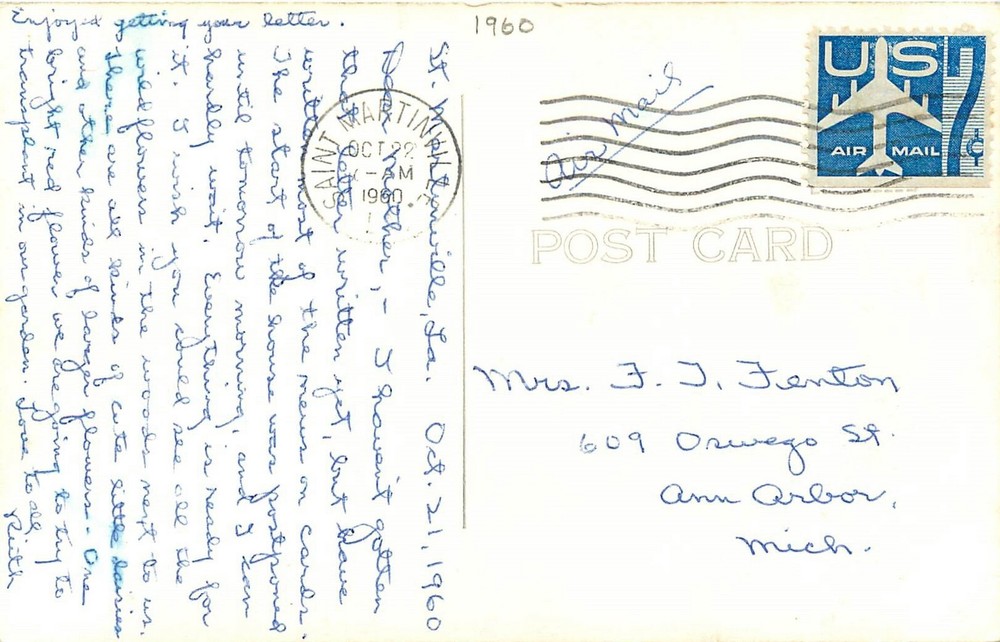 Enjoyed getting your letter.
St. Martinville, La. Oct. 21, 1960
Dear Mother,- I haven't gotten
that letter written yet, but have
written most of the news on cards.
The start of the house was postponed
until tomorrow morning, and I can
hardly wait. Everything is ready for
it. I wish you could see all the
wildflowers in the woods next to us.
There are all kinds of cute little daisies
and other kinds of larger flowers - One
bright red flower we are going to try to
transplant in our garden. Love to all
Ruth
1960
Air Mail
SAINT MARTINVILLE
OCT 22
AM
1960
US
7¢
AIR MAIL
POST CARD
Mrs. F. I. Fenton
609 Oswego St.
Ann Arbor,
Mich.